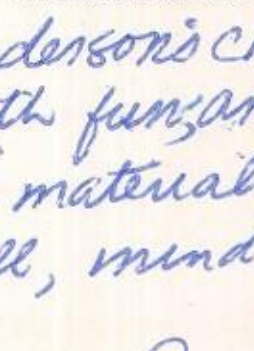 derson's c
th fun; an
material
ll, mind